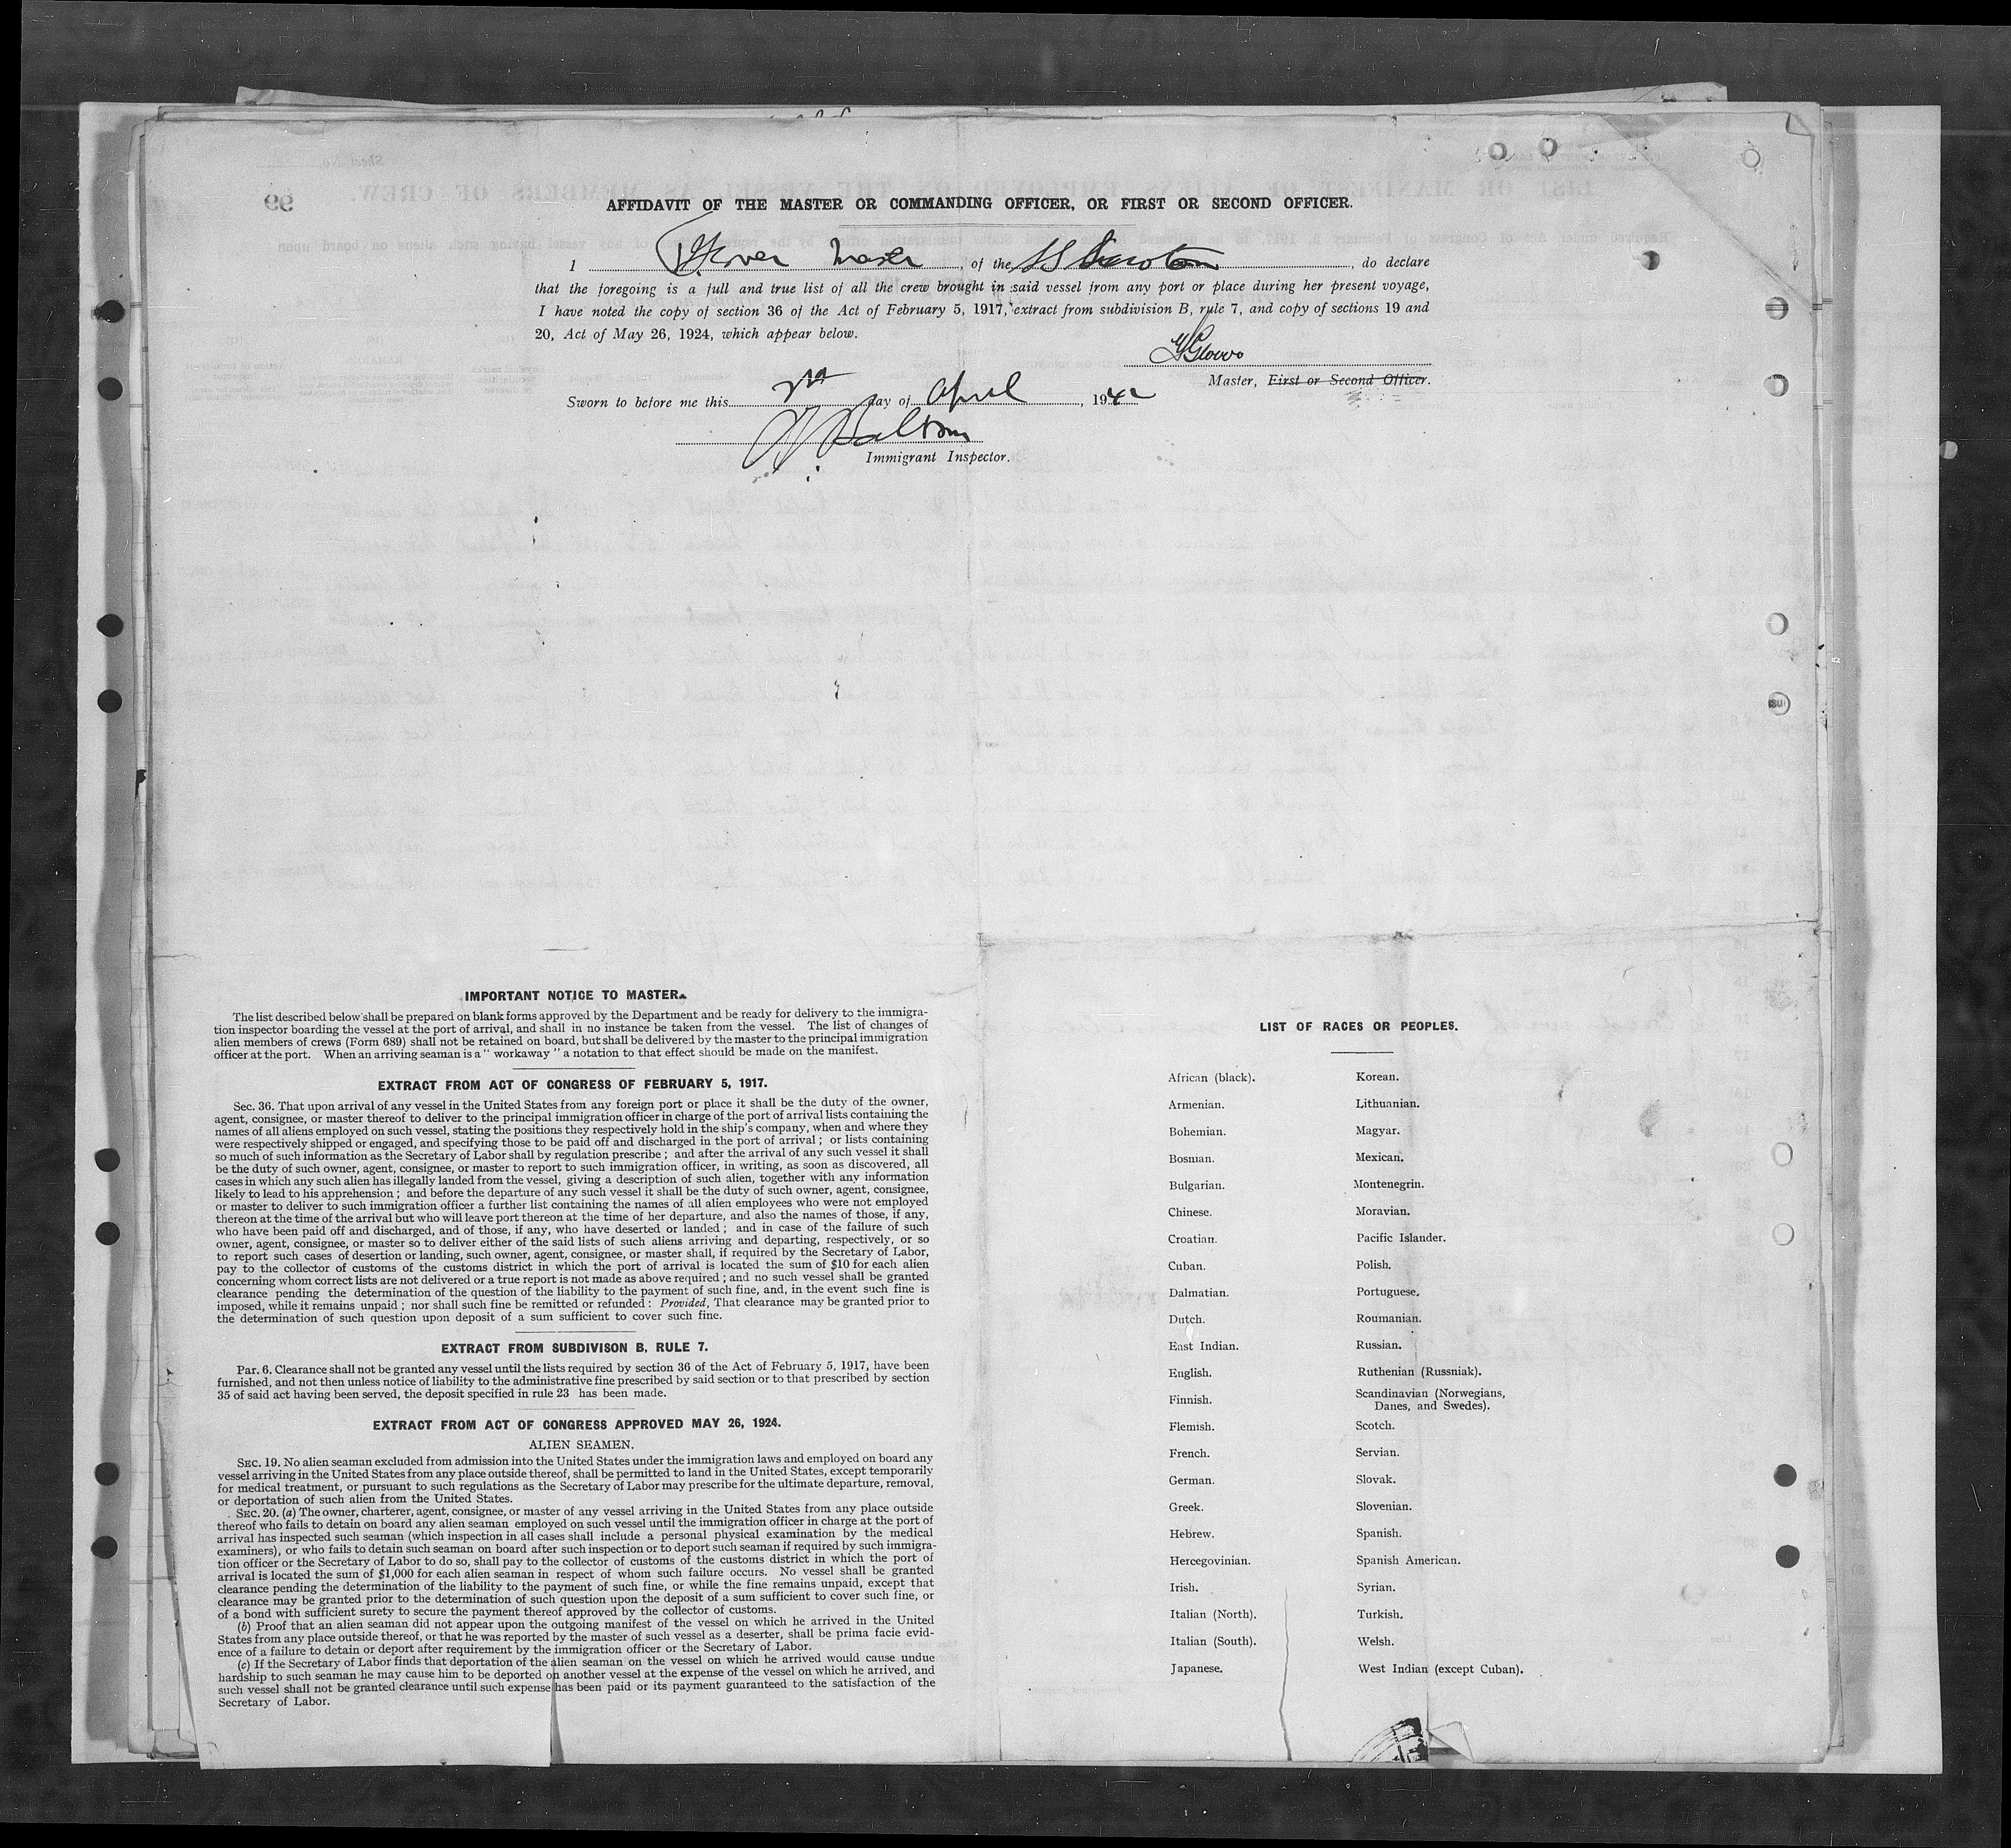 AFFIDAVIT OF THE MASTER OR COMMANDING OFFICER, OR FIRST OR SECOND OFFICER.
I Master, of the SS, do declare
that the foregoing is a full and true list of all the crew brought in said vessel from any port or place during her present voyage,
I have noted the copy of section 36 of the Act of February 5, 1917, extract from subdivision B, rule 7, and copy of sections 19 and
20, Act of May 26, 1924, which appear below.
Master, First or Second Officer.
Sworn to before me this day of April, 1942
Immigrant Inspector.
IMPORTANT NOTICE TO MASTER.
The list described below shall be prepared on blank forms approved by the Department and be ready for delivery to the immigra-
tion inspector boarding the vessel at the port of arrival, and shall in no instance be taken from the vessel. The list of changes of
alien members of crews (Form 689) shall not be retained on board, but shall be delivered by the master to the principal immigration
officer at the port. When an arriving seaman is a " workaway " a notation to that effect should be made on the manifest.
EXTRACT FROM ACT OF CONGRESS OF FEBRUARY 5, 1917.
Sec. 36. That upon arrival of any vessel in the United States from any foreign port or place it shall be the duty of the owner,
agent, consignee, or master thereof to deliver to the principal immigration officer in charge of the port of arrival lists containing the
names of all aliens employed on such vessel, stating the positions they respectively hold in the ship's company, when and where they
were respectively shipped or engaged, and specifying those to be paid off and discharged in the port of arrival ; or lists containing
so much of such information as the Secretary of Labor shall by regulation prescribe ; and after the arrival of any such vessel it shall
be the duty of such owner, agent, consignee, or master to report to such immigration officer, in writing, as soon as discovered, all
cases in which any such alien has illegally landed from the vessel, giving a description of such alien, together with any information
likely to lead to his apprehension ; and before the departure of any such vessel it shall be the duty of such owner, agent, consignee,
or master to deliver to such immigration officer a further list containing the names of all alien employees who were not employed
thereon at the time of the arrival but who will leave port thereon at the time of her departure, and also the names of those, if any,
who have been paid off and discharged, and of those, if any, who have deserted or landed ; and in case of the failure of such
owner, agent, consignee, or master so to deliver either of the said lists of such aliens arriving and departing, respectively, or so
to report such cases of desertion or landing, such owner, agent, consignee, or master shall, if required by the Secretary of Labor,
pay to the collector of customs of the customs district in which the port of arrival is located the sum of $10 for each alien
concerning whom correct lists are not delivered or a true report is not made as above required ; and no such vessel shall be granted
clearance pending the determination of the question of the liability to the payment of such fine, and, in the event such fine is
imposed, while it remains unpaid ; nor shall such fine be remitted or refunded : Provided, That clearance may be granted prior to
the determination of such question upon deposit of a sum sufficient to cover such fine.
EXTRACT FROM SUBDIVISON B, RULE 7.
Par. 6. Clearance shall not be granted any vessel until the lists required by section 36 of the Act of February 5, 1917, have been
furnished, and not then unless notice of liability to the administrative fine prescribed by said section or to that prescribed by section
35 of said act having been served, the deposit specified in rule 23 has been made.
EXTRACT FROM ACT OF CONGRESS APPROVED MAY 26, 1924.
ALIEN SEAMEN.
SEC. 19. No alien seaman excluded from admission into the United States under the immigration laws and employed on board any
vessel arriving in the United States from any place outside thereof, shall be permitted to land in the United States, except temporarily
for medical treatment, or pursuant to such regulations as the Secretary of Labor may prescribe for the ultimate departure, removal,
or deportation of such alien from the United States.
SEC. 20. (a) The owner, charterer, agent, consignee, or master of any vessel arriving in the United States from any place outside
thereof who fails to detain on board any alien seaman employed on such vessel until the immigration officer in charge at the port of
arrival has inspected such seaman (which inspection in all cases shall include a personal physical examination by the medical
examiners), or who fails to detain such seaman on board after such inspection or to deport such seaman if required by such immigra-
tion officer or the Secretary of Labor to do so, shall pay to the collector of customs of the customs district in which the port of
arrival is located the sum of $1,000 for each alien seaman in respect of whom such failure occurs. No vessel shall be granted
clearance pending the determination of the liability to the payment of such fine, or while the fine remains unpaid, except that
clearance may be granted prior to the determination of such question upon the deposit of a sum sufficient to cover such fine, or
of a bond with sufficient surety to secure the payment thereof approved by the collector of customs.
(b) Proof that an alien seaman did not appear upon the outgoing manifest of the vessel on which he arrived in the United
States from any place outside thereof, or that he was reported by the master of such vessel as a deserter, shall be prima facie evid-
ence of a failure to detain or deport after requirement by the immigration officer or the Secretary of Labor.
(c) If the Secretary of Labor finds that deportation of the alien seaman on the vessel on which he arrived would cause undue
hardship to such seaman he may cause him to be deported on another vessel at the expense of the vessel on which he arrived, and
such vessel shall not be granted clearance until such expense has been paid or its payment guaranteed to the satisfaction of the
Secretary of Labor.
LIST OF RACES OR PEOPLES.
African (black). Korean.
Armenian. Lithuanian.
Bohemian. Magyar.
Bosnian. Mexican.
Bulgarian. Montenegrin.
Chinese. Moravian.
Croatian. Pacific Islander.
Cuban. Polish.
Dalmatian. Portuguese.
Dutch. Roumanian.
East Indian. Russian.
English. Ruthenian (Russniak).
Finnish. Scandinavian (Norwegians,
Danes, and Swedes).
Flemish. Scotch.
French. Servian.
German. Slovak.
Greek. Slovenian.
Hebrew. Spanish.
Hercegovinian. Spanish American.
Irish. Syrian.
Italian (North). Turkish.
Italian (South). Welsh.
Japanese. West Indian (except Cuban).